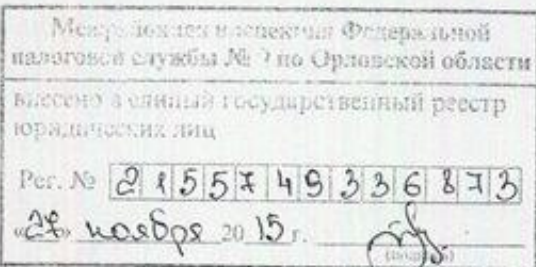 Межрайонная инспекция Федеральной
налоговой службы № по Орловской области
внесено в единый государственный реестр
юридических лиц
Рег. № 2155749336873
«27» ноября 2015 г.
(подпись)